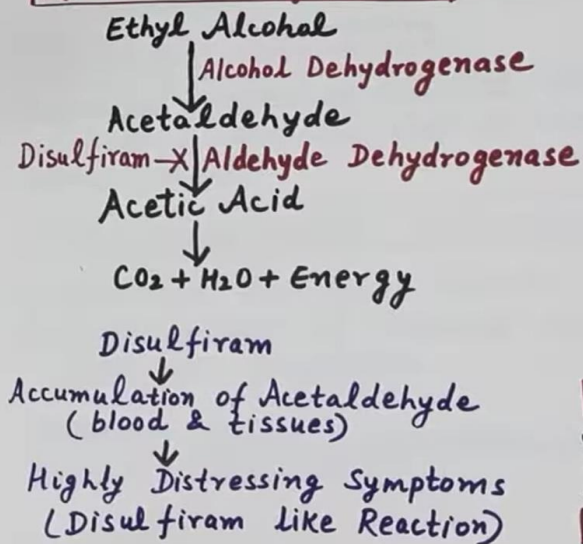 Ethyl Alcohol
Alcohol Dehydrogenase
Acetaldehyde
Disulfiram Aldehyde Dehydrogenase
Acetic Acid
CO2 + H2O + Energy
Disulfiram
Accumulation of Acetaldehyde
(blood & tissues)
Highly Distressing Symptoms
(Disulfiram like Reaction)